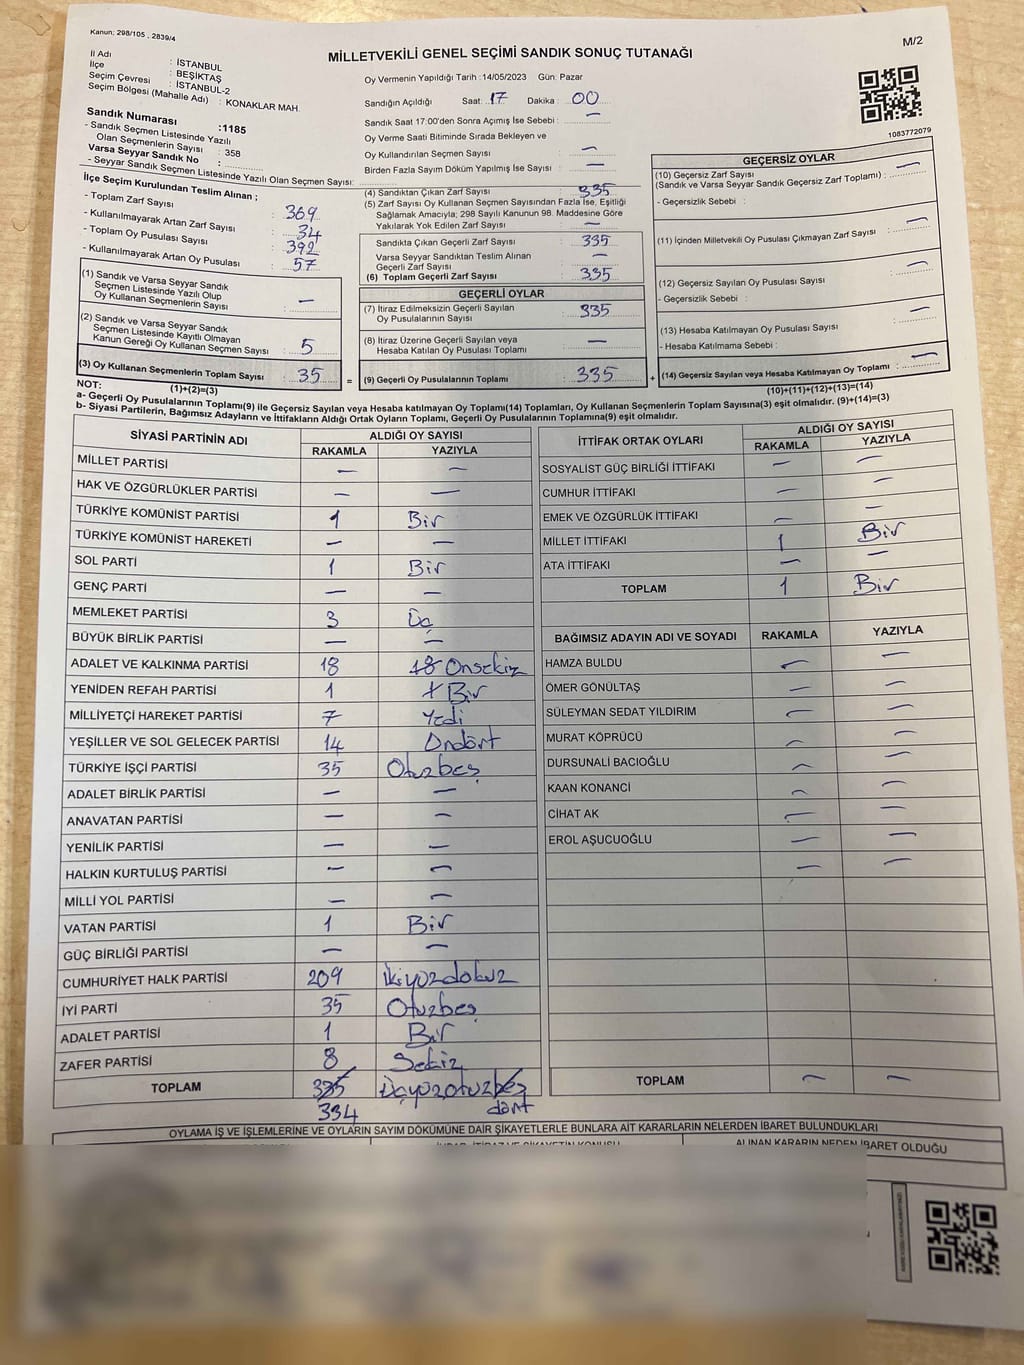 Kanun; 298/105 , 2839/4
MİLLETVEKİLİ GENEL SEÇİMİ SANDIK SONUÇ TUTANAĞI
M/2
İl Adı : İSTANBUL
İlçe : BEŞİKTAŞ
Seçim Çevresi : İSTANBUL-2
Seçim Bölgesi (Mahalle Adı) : KONAKLAR MAH.
Sandık Numarası :1185
- Sandık Seçmen Listesinde Yazılı
Olan Seçmenlerin Sayısı : 358
Varsa Seyyar Sandık No :
- Seyyar Sandık Seçmen Listesinde Yazılı Olan Seçmen Sayısı:
İlçe Seçim Kurulundan Teslim Alınan ;
- Toplam Zarf Sayısı : 369
- Kullanılmayarak Artan Zarf Sayısı : 34
- Toplam Oy Pusulası Sayısı : 392
- Kullanılmayarak Artan Oy Pusulası : 57
(1) Sandık ve Varsa Seyyar Sandık
Seçmen Listesinde Yazılı Olup
Oy Kullanan Seçmenlerin Sayısı : —
(2) Sandık ve Varsa Seyyar Sandık
Seçmen Listesinde Kayıtlı Olmayan
Kanun Gereği Oy Kullanan Seçmen Sayısı : 5
(3) Oy Kullanan Seçmenlerin Toplam Sayısı : 35
(1)+(2)=(3)
Oy Vermenin Yapıldığı Tarih :14/05/2023 Gün: Pazar
Sandığın Açıldığı Saat: 17 Dakika : 00
Sandık Saat 17.00'den Sonra Açımış İse Sebebi : —
Oy Verme Saati Bitiminde Sırada Bekleyen ve
Oy Kullandırılan Seçmen Sayısı : —
Birden Fazla Sayım Döküm Yapılmış İse Sayısı : —
(4) Sandıktan Çıkan Zarf Sayısı : 335
(5) Zarf Sayısı Oy Kullanan Seçmen Sayısından Fazla İse, Eşitliği
Sağlamak Amacıyla; 298 Sayılı Kanunun 98. Maddesine Göre
Yakılarak Yok Edilen Zarf Sayısı : —
Sandıkta Çıkan Geçerli Zarf Sayısı : 335
Varsa Seyyar Sandıktan Teslim Alınan
Geçerli Zarf Sayısı : —
(6) Toplam Geçerli Zarf Sayısı : 335
GEÇERLİ OYLAR
(7) İtiraz Edilmeksizin Geçerli Sayılan
Oy Pusulalarının Sayısı : 335
(8) İtiraz Üzerine Geçerli Sayılan veya
Hesaba Katılan Oy Pusulası Toplamı : —
= (9) Geçerli Oy Pusulalarının Toplamı : 335 +
1083772079
GEÇERSİZ OYLAR
(10) Geçersiz Zarf Sayısı
(Sandık ve Varsa Seyyar Sandık Geçersiz Zarf Toplamı) : —
- Geçersizlik Sebebi :
(11) İçinden Milletvekili Oy Pusulası Çıkmayan Zarf Sayısı : —
(12) Geçersiz Sayılan Oy Pusulası Sayısı : —
- Geçersizlik Sebebi :
(13) Hesaba Katılmayan Oy Pusulası Sayısı : —
- Hesaba Katılmama Sebebi :
(14) Geçersiz Sayılan veya Hesaba Katılmayan Oy Toplamı : —
(10)+(11)+(12)+(13)=(14)
NOT:
a- Geçerli Oy Pusulası Toplamı(9) ile Geçersiz Sayılan veya Hesaba katılmayan Oy Toplamı(14) Toplamları, Oy Kullanan Seçmenlerin Toplam Sayısına(3) eşit olmalıdır. (9)+(14)=(3)
b- Siyasi Partilerin, Bağımsız Adayların ve İttifakların Aldığı Ortak Oyların Toplamı, Geçerli Oy Pusulalarının Toplamına(9) eşit olmalıdır.
SİYASİ PARTİNİN ADI ALDIĞI OY SAYISI
RAKAMLA YAZIYLA
MİLLET PARTİSİ — —
HAK VE ÖZGÜRLÜKLER PARTİSİ — —
TÜRKİYE KOMÜNİST PARTİSİ 1 Bir
TÜRKİYE KOMÜNİST HAREKETİ — —
SOL PARTİ 1 Bir
GENÇ PARTİ — —
MEMLEKET PARTİSİ 3 Üç
BÜYÜK BİRLİK PARTİSİ — —
ADALET VE KALKINMA PARTİSİ 18 18 Onsekiz
YENİDEN REFAH PARTİSİ 1 Bir
MİLLİYETÇİ HAREKET PARTİSİ 7 Yedi
YEŞİLLER VE SOL GELECEK PARTİSİ 14 Ondört
TÜRKİYE İŞÇİ PARTİSİ 35 Otuzbeş
ADALET BİRLİK PARTİSİ — —
ANAVATAN PARTİSİ — —
YENİLİK PARTİSİ — —
HALKIN KURTULUŞ PARTİSİ — —
MİLLİ YOL PARTİSİ — —
VATAN PARTİSİ 1 Bir
GÜÇ BİRLİĞİ PARTİSİ — —
CUMHURİYET HALK PARTİSİ 209 İkiyüzdokuz
İYİ PARTİ 35 Otuzbeş
ADALET PARTİSİ 1 Bir
ZAFER PARTİSİ 8 Sekiz
TOPLAM 335 Üçyüzotuzbeş
334 dört
İTTİFAK ORTAK OYLARI ALDIĞI OY SAYISI
RAKAMLA YAZIYLA
SOSYALİST GÜÇ BİRLİĞİ İTTİFAKI — —
CUMHUR İTTİFAKI — —
EMEK VE ÖZGÜRLÜK İTTİFAKI — —
MİLLET İTTİFAKI 1 Bir
ATA İTTİFAKI — —
TOPLAM 1 Bir
BAĞIMSIZ ADAYIN ADI VE SOYADI RAKAMLA YAZIYLA
HAMZA BULDU — —
ÖMER GÖNÜLTAŞ — —
SÜLEYMAN SEDAT YILDIRIM — —
MURAT KÖPRÜCÜ — —
DURSUNALİ BACIOĞLU — —
KAAN KONANCİ — —
CİHAT AK — —
EROL AŞUCUOĞLU — —
— —
TOPLAM — —
OYLAMA İŞ VE İŞLEMLERİNE VE OYLARIN SAYIM DÖKÜMÜNE DAİR ŞİKAYETLERLE BUNLARA AİT KARARLARIN NELERDEN İBARET BULUNDUKLARI
ALINAN KARARIN NEDEN İBARET OLDUĞU